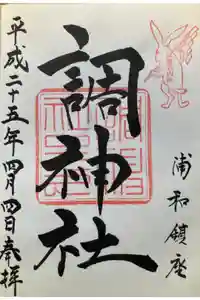 浦和鎮座
調神社
平成二十五年四月四日奉拝